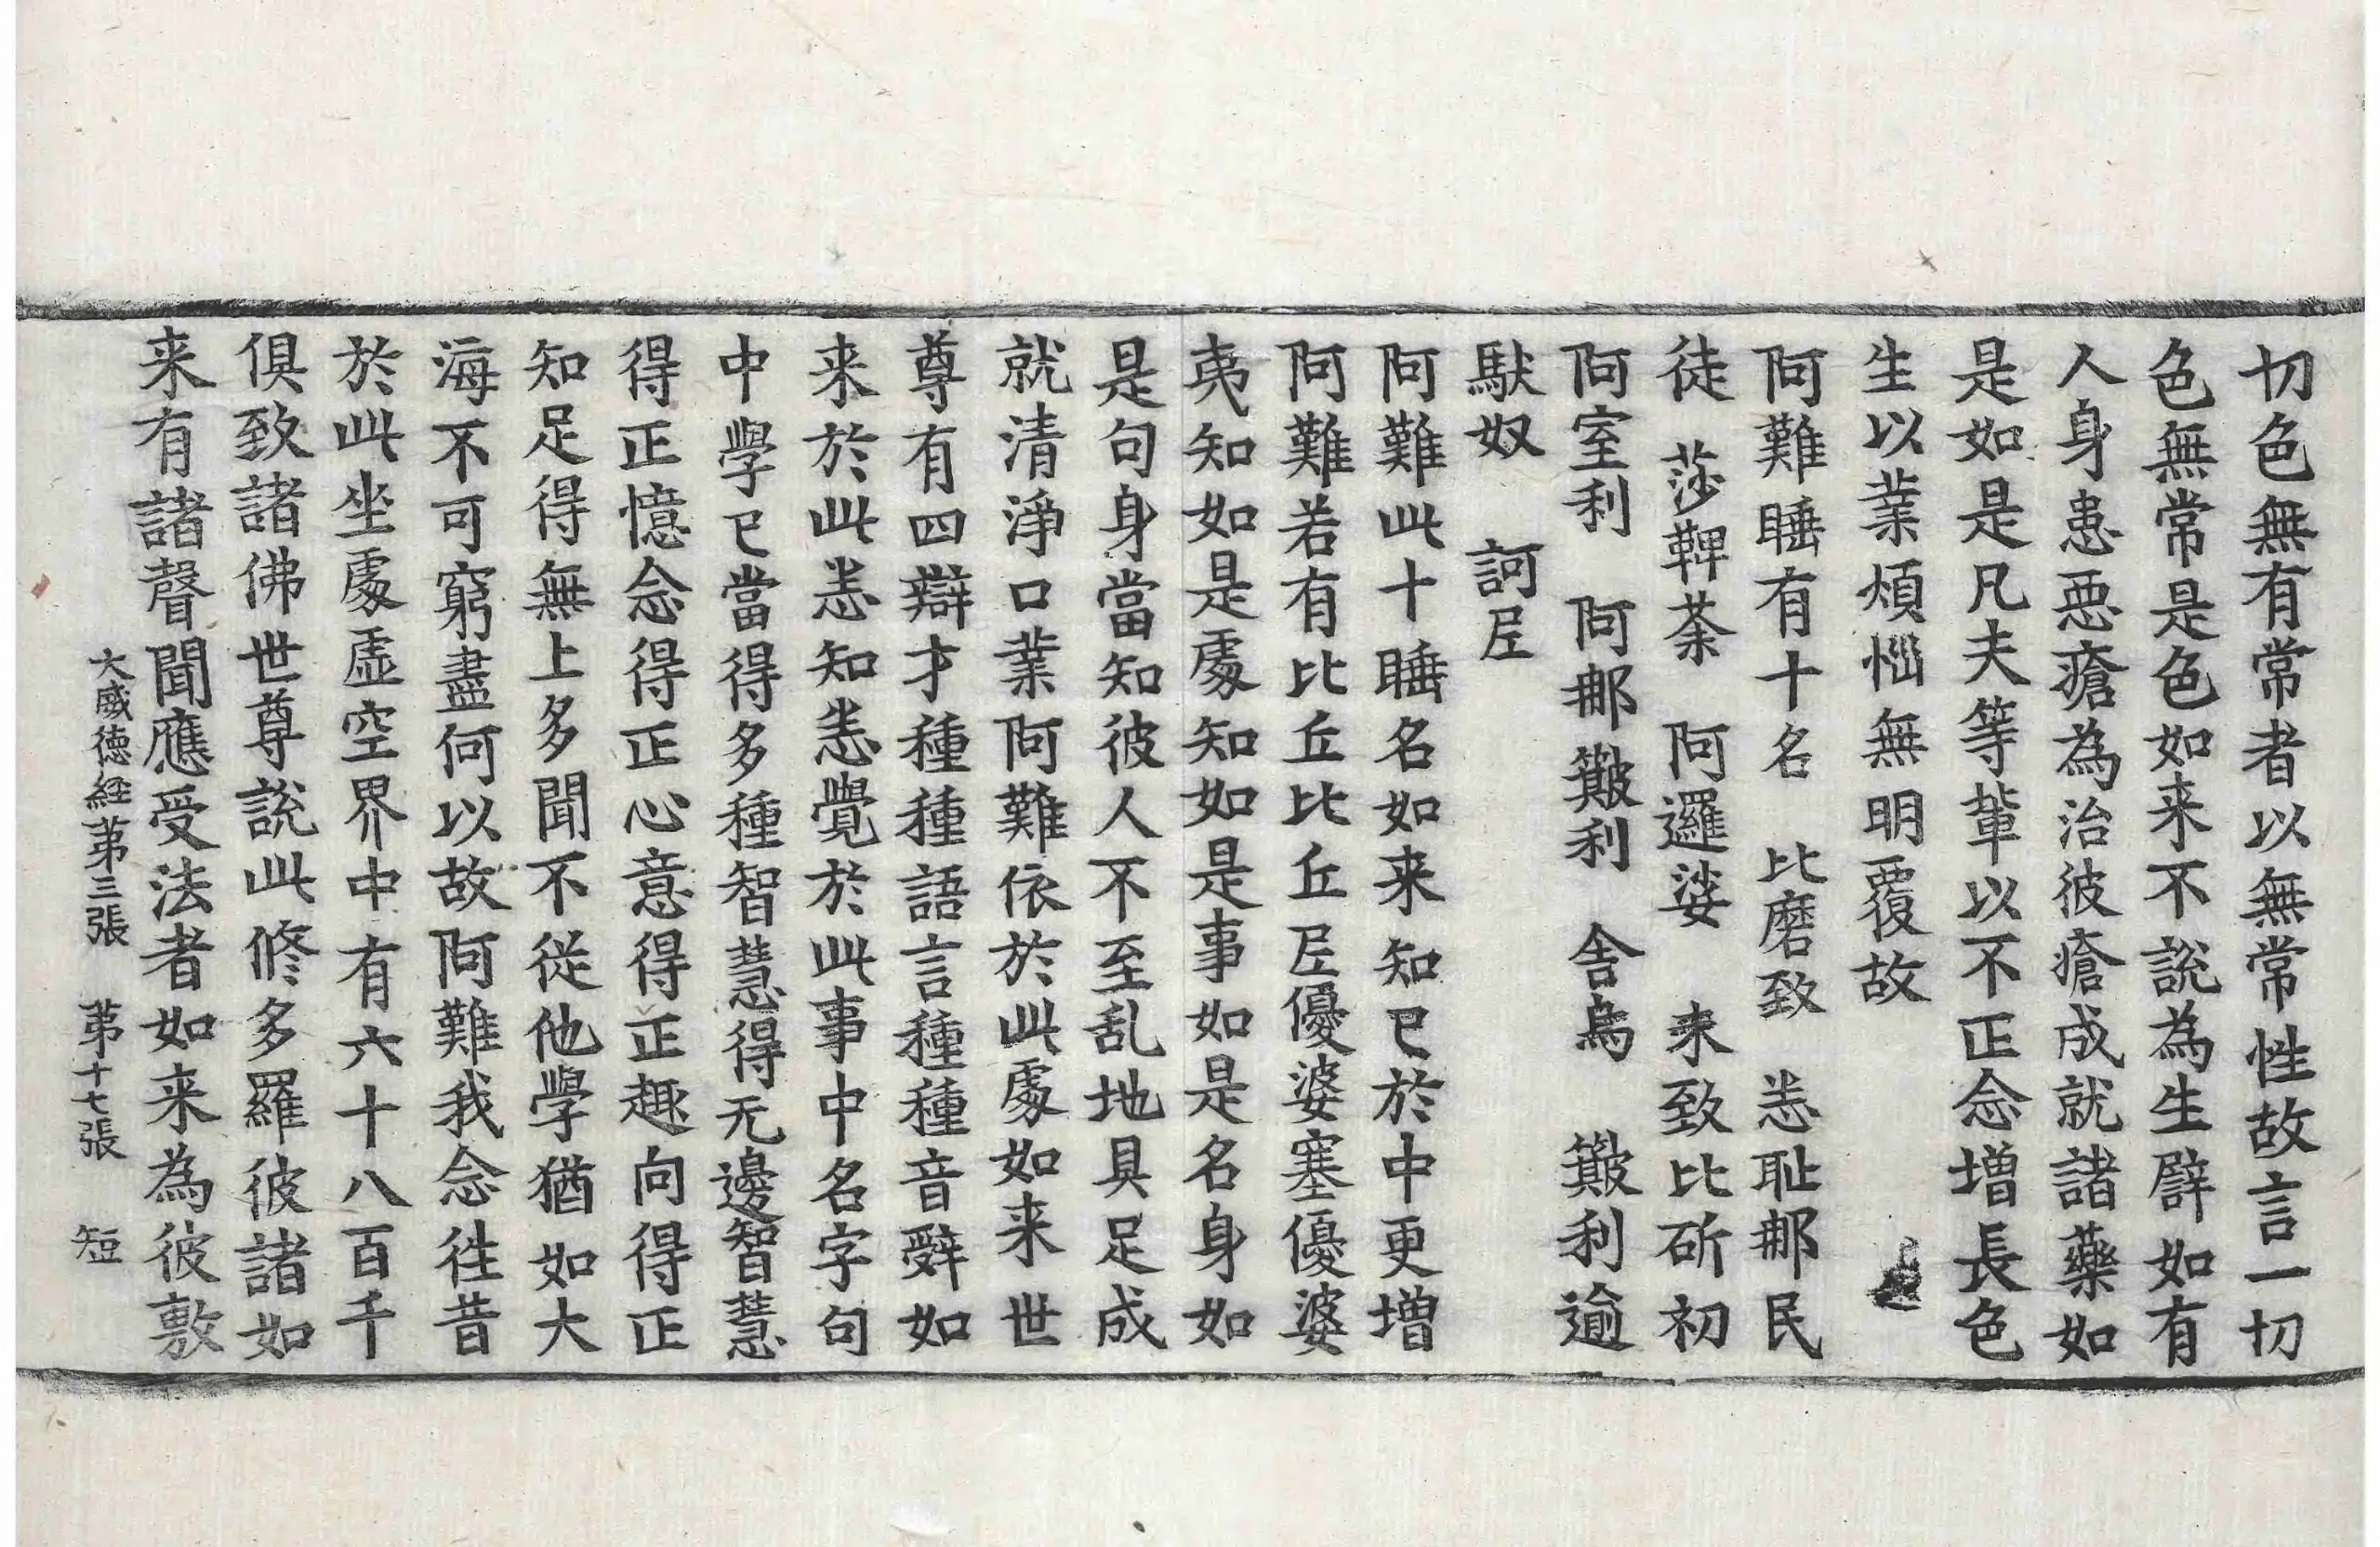 切色無有常者以無常性故言一切
色無常是色如来不說為生譬如有
人身患惡瘡為治彼瘡成就諸藥如
是如是凡夫等輩以不正念增長色
生以業煩惱無明覆故
阿難睡有十名 比磨致 恙耻那民
徒 莎鞞荼 阿邏娑 来致比斫初
阿室利 阿那簸利 舍烏 簸利逾
馱奴 訶𡰱
阿難此十睡名如来知已於中更增
阿難若有比丘比丘𡰱優婆塞優婆
夷知如是處知如是事如是名身如
是句身當知彼人不至乱地具足成
就清淨口業阿難依於此處如来世
尊有四辯才種種語言種種音辭如
来於此恙知恙覺於此事中名字句
中學已當得多種智慧得无邊智慧
得正憶念得正心意得正趣向得正
知足得無上多聞不從他學猶如大
海不可窮盡何以故阿難我念往昔
於此坐處虛空界中有六十八百千
俱致諸佛世尊說此修多羅彼諸如
来有諸聲聞應受法者如来為彼敷
大威徳経苐三張 苐十七張 短